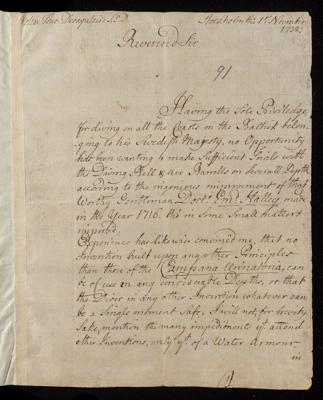 John Theo. Desaguliers LL.D.
Stockholm the 1st Novembr
1732
Reverend Sir
91
Having the Sole Priviledge
for diving on all the Coasts on the Baltick belon,
ging to his Swedish Majesty, no Opportunity
has been wanting to make Sufficient Trials with
the Diving Bell & air Barrells on severall Depths
according to the ingenious improvement of that
Worthy Gentleman Doctr. Edmd. Halley made
in the Year 1716. tho in some Small matters
improv'd.
Experience has likewise convinced me, that no
Invention built upon any other Principles
than those of the Campana Urinatoria, can
be of use in any considerable Depths, or that
the Diver in any other Invention whatever can
be a Single moment Safe. I will not, for brevity
Sake, mention the many impediments yt. attend
other Inventions, only yt. of a Water Armour.
in